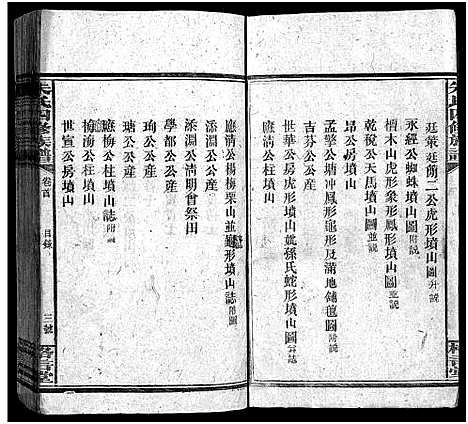 朱氏四修族譜
廷萊廷簡二公虎形墳山圖并說
永經公蜘蛛墳山圖附說
檀木山虎形象形鳳形墳山圖并說
乾稅公天馬墳山圖並說
孟擎公塘冲鳳形龜形及滿地鋪氊圖附說
昂公公產
吉芬公公產
世華公房虎形墳山並孫氏蛇形墳山圖
應清公柱墳山
應清公楊梅栗山並窰形墳山誌附圖
添淵公清明會祭田
添淵公公產
學都公公產
珣公公產
瑭公公產
梅海公柱墳山誌附圖
梅海公柱墳山
世宣公房墳山
朱氏四修族譜
卷首
目錄
三號